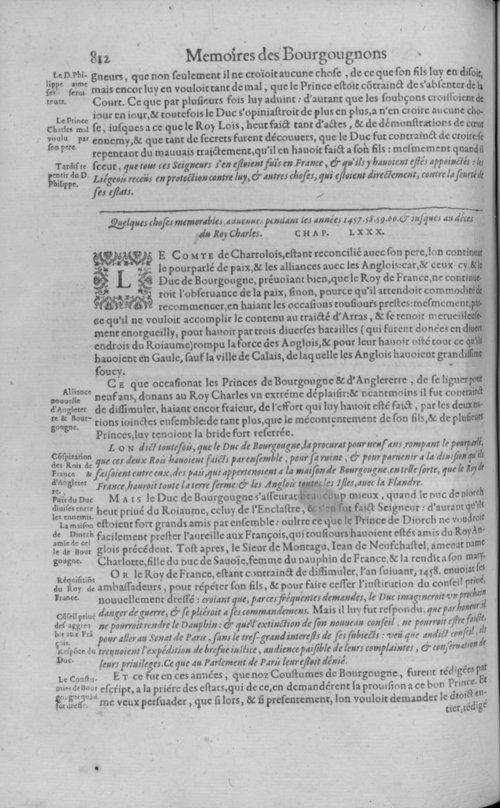 812 Memoires des Bourgougnons
Le D. Phi-
lippe aime
ses servi
teurs.
Le Prince
Charles mal
voulu par
son pere.
Tardif re
pentir du D.
Philippe.
gneurs, que non seulement il ne croïoit aucune chose, de ce que son fils luy en disoit,
mais encor luy en vouloit tant de mal, que le Prince estoit cõtrainct de s'absenter de la
Court. Ce que par plusieurs fois luy aduint: d'autant que les soubçons croissoient de
iour en iour, & toutefois le Duc s'opiniastroit de plus en plus, à n'en croire aucune cho-
se, iusques a ce que le Roy Loïs, heut faict tant d'actes, & de démonstrations de cœur
ennemy, & que tant de secrets furent découuers, que le Duc fut contrainct de croire & se
repentant du mauuais traictement, qu'il en hauoit faict a son fils: mesmement quand il
sceut, que tous ces Seigneurs s'en estoient fuïs en France, & qu'ils y hauoient estés appoinctés: les
Liégeois receüs en protection contre luy, & autres choses, qui estoient directement, contre la seurté de
ses estats.
Quelques choses memorables aduenues pendant les années 1457.58.59.60. & iusques au déces
du Roy Charles. CHAP. LXXX.
LE COMTE de Charrolois, estant reconcilié auec son pere, lon continue
le pourparlé de paix, & les alliances auec les Anglois: car, & ceux cy & le
Duc de Bourgougne, préuoiant bien, que le Roy de France, ne continue-
roit l'obseruance de la paix, sinon, pource qu'il attendoit commodité de
recommencer, en haiant les occasions tousiours prestes: mesmement, par-
ce qu'il ne vouloit accomplir le contenu au traicté d'Arras, & se tenoit merueilleuse-
ment enorgueilly, pour hauoir par trois diuerses batailles (qui furent donées en diuers
endrois du Roiaume) rompu la force des Anglois, & pour leur hauoir osté tout ce qu'ils
hauoient en Gaule, sauf la ville de Calais, de laquelle les Anglois hauoient grandissime
soucy.
Alliance
nouuelle
d'Angleter
re & Bour-
gongne.
CE que occasionat les Princes de Bourgougne & d'Anglererre, de se liguer pour
neuf ans, donans au Roy Charles vn extréme déplaisir: & neantmoins il fut contrainct
de dissimuler, haiant encor fraieur, de l'effort qui luy hauoit esté faict, par les deux na-
tions ioinctes ensemble: de tant plus, que le mécontentement de son fils, & de plusieurs
Princes, luy tenoient la bride fort resserrée.
Cõspiration
des Rois de
France &
d'Angleter
re.
LON dict toutefois, que le Duc de Bourgougne, la procurat pour neuf ans, rompant le pourparlé,
que ces deux Rois hauoient faicts par ensemble, pour sa ruine, & pour paruenir a la diuision qu'ils
faisoient entre eux, des païs, qui appertenoient a la maison de Bourgougne. en telle sorte, que le Roy de
France, hauroit toute la terre ferme & les Anglois toutes les Isles, auec la Flandre.
Païs du Duc
diuisés entre
les ennemis.
La maison
de Diorch
amie de cel
le de Bour
gougne.
MAIS le Duc de Bourgougne s'asseurat beaucoup mieux, quand le Duc de Diorch
heut priué du Roiaume, celuy de l'Enclastre, & s'en fut faict Seigneur: d'autant qu'ils
estoient fort grands amis par ensemble: oultre ce que le Prince de Diorch ne voudroit
facilement prester l'aureille aux François, qui tousiours hauoient estés amis du Roy An-
glois précédent. Tost apres, le Sieur de Montagu, Iean de Neufchastel, amenat dame
Charlotte, fille du duc de Sauoïe, femme du dauphin de France, & la rendit a son mary.
Réquisitiõs
du Roy de
France.
Cõseil priué
des aggres-
bie aux Frã
çois.
Respõce du
Duc.
OR le Roy de France, estant contrainct de dissimuler, l'an suiuant, 1458. enuoiat ses
ambassadeurs, pour répéter son fils, & pour faire cesser l'institution du conseil priué,
nouuellement dressé: croiant que, par ces fréquentes demandes, le Duc imagineroit vn prochain
danger de guerre, & se pliéroit a ses commandemens. Mais il luy fut respondu, que par honeur il
ne pourroit rendre le Dauphin: & quél'extinction de son nouueau conseil, ne pourroit estre faicte,
pour aller au Senat de Paris, sans le tres-grand interests de ses subiects: veü que audict conseil, ils
treuuoient l'expédition de brefue iustice, audience paisible de leurs complaintes, & conseruation de
leurs priuileges. Ce que au Parlement de Paris leur estoit dénié.
Le Coustu-
mier de Bour
gougne quãd
fut dressé.
ET ce fut en ces années, que noz Coustumes de Bourgougne, furent rédigées par
escript, a la priére des estats, qui de ce, en demandérent la prouision a ce bon Prince. Et
me veux persuader, que si lors, & si presentement, lon vouloit demander le droict en-
tier, rédigé